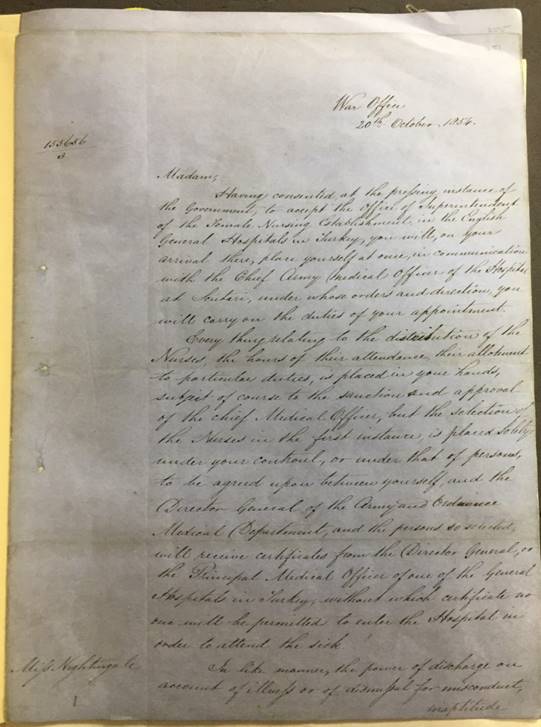 War Office
20th October, 1854.
155656
3
Madam,
Having consented at the pressing instance of
the Government, to accept the Office of Superintendent
of the Female Nursing Establishment in the English
General Hospitals in Turkey, you will, on your
arrival there, place yourself at once, in communication
with the Chief Army Medical Officer of the Hospital
at Scutari, under whose orders and direction, you
will carry on the duties of your appointment.
Every thing relating to the distribution of the
Nurses, the hours of their attendance, their allotment
to particular duties, is placed in your hands,
subject of course to the sanction and approval
of the chief Medical Officer, but the selection of
the Nurses in the first instance, is placed solely
under your controul, or under that of persons,
to be agreed upon between yourself, and the
Director General of the Army and Ordnance
Medical Department, and the persons so selected,
will receive certificates from the Director General, or
the Principal Medical Officer of one of the General
Hospitals in Turkey, without which certificate no
one will be permitted to enter the Hospital in
order to attend the sick.
In like manner, the power of discharge on
account of illness or of dismissal for misconduct,
inaptitude
Miss Nightingale
1